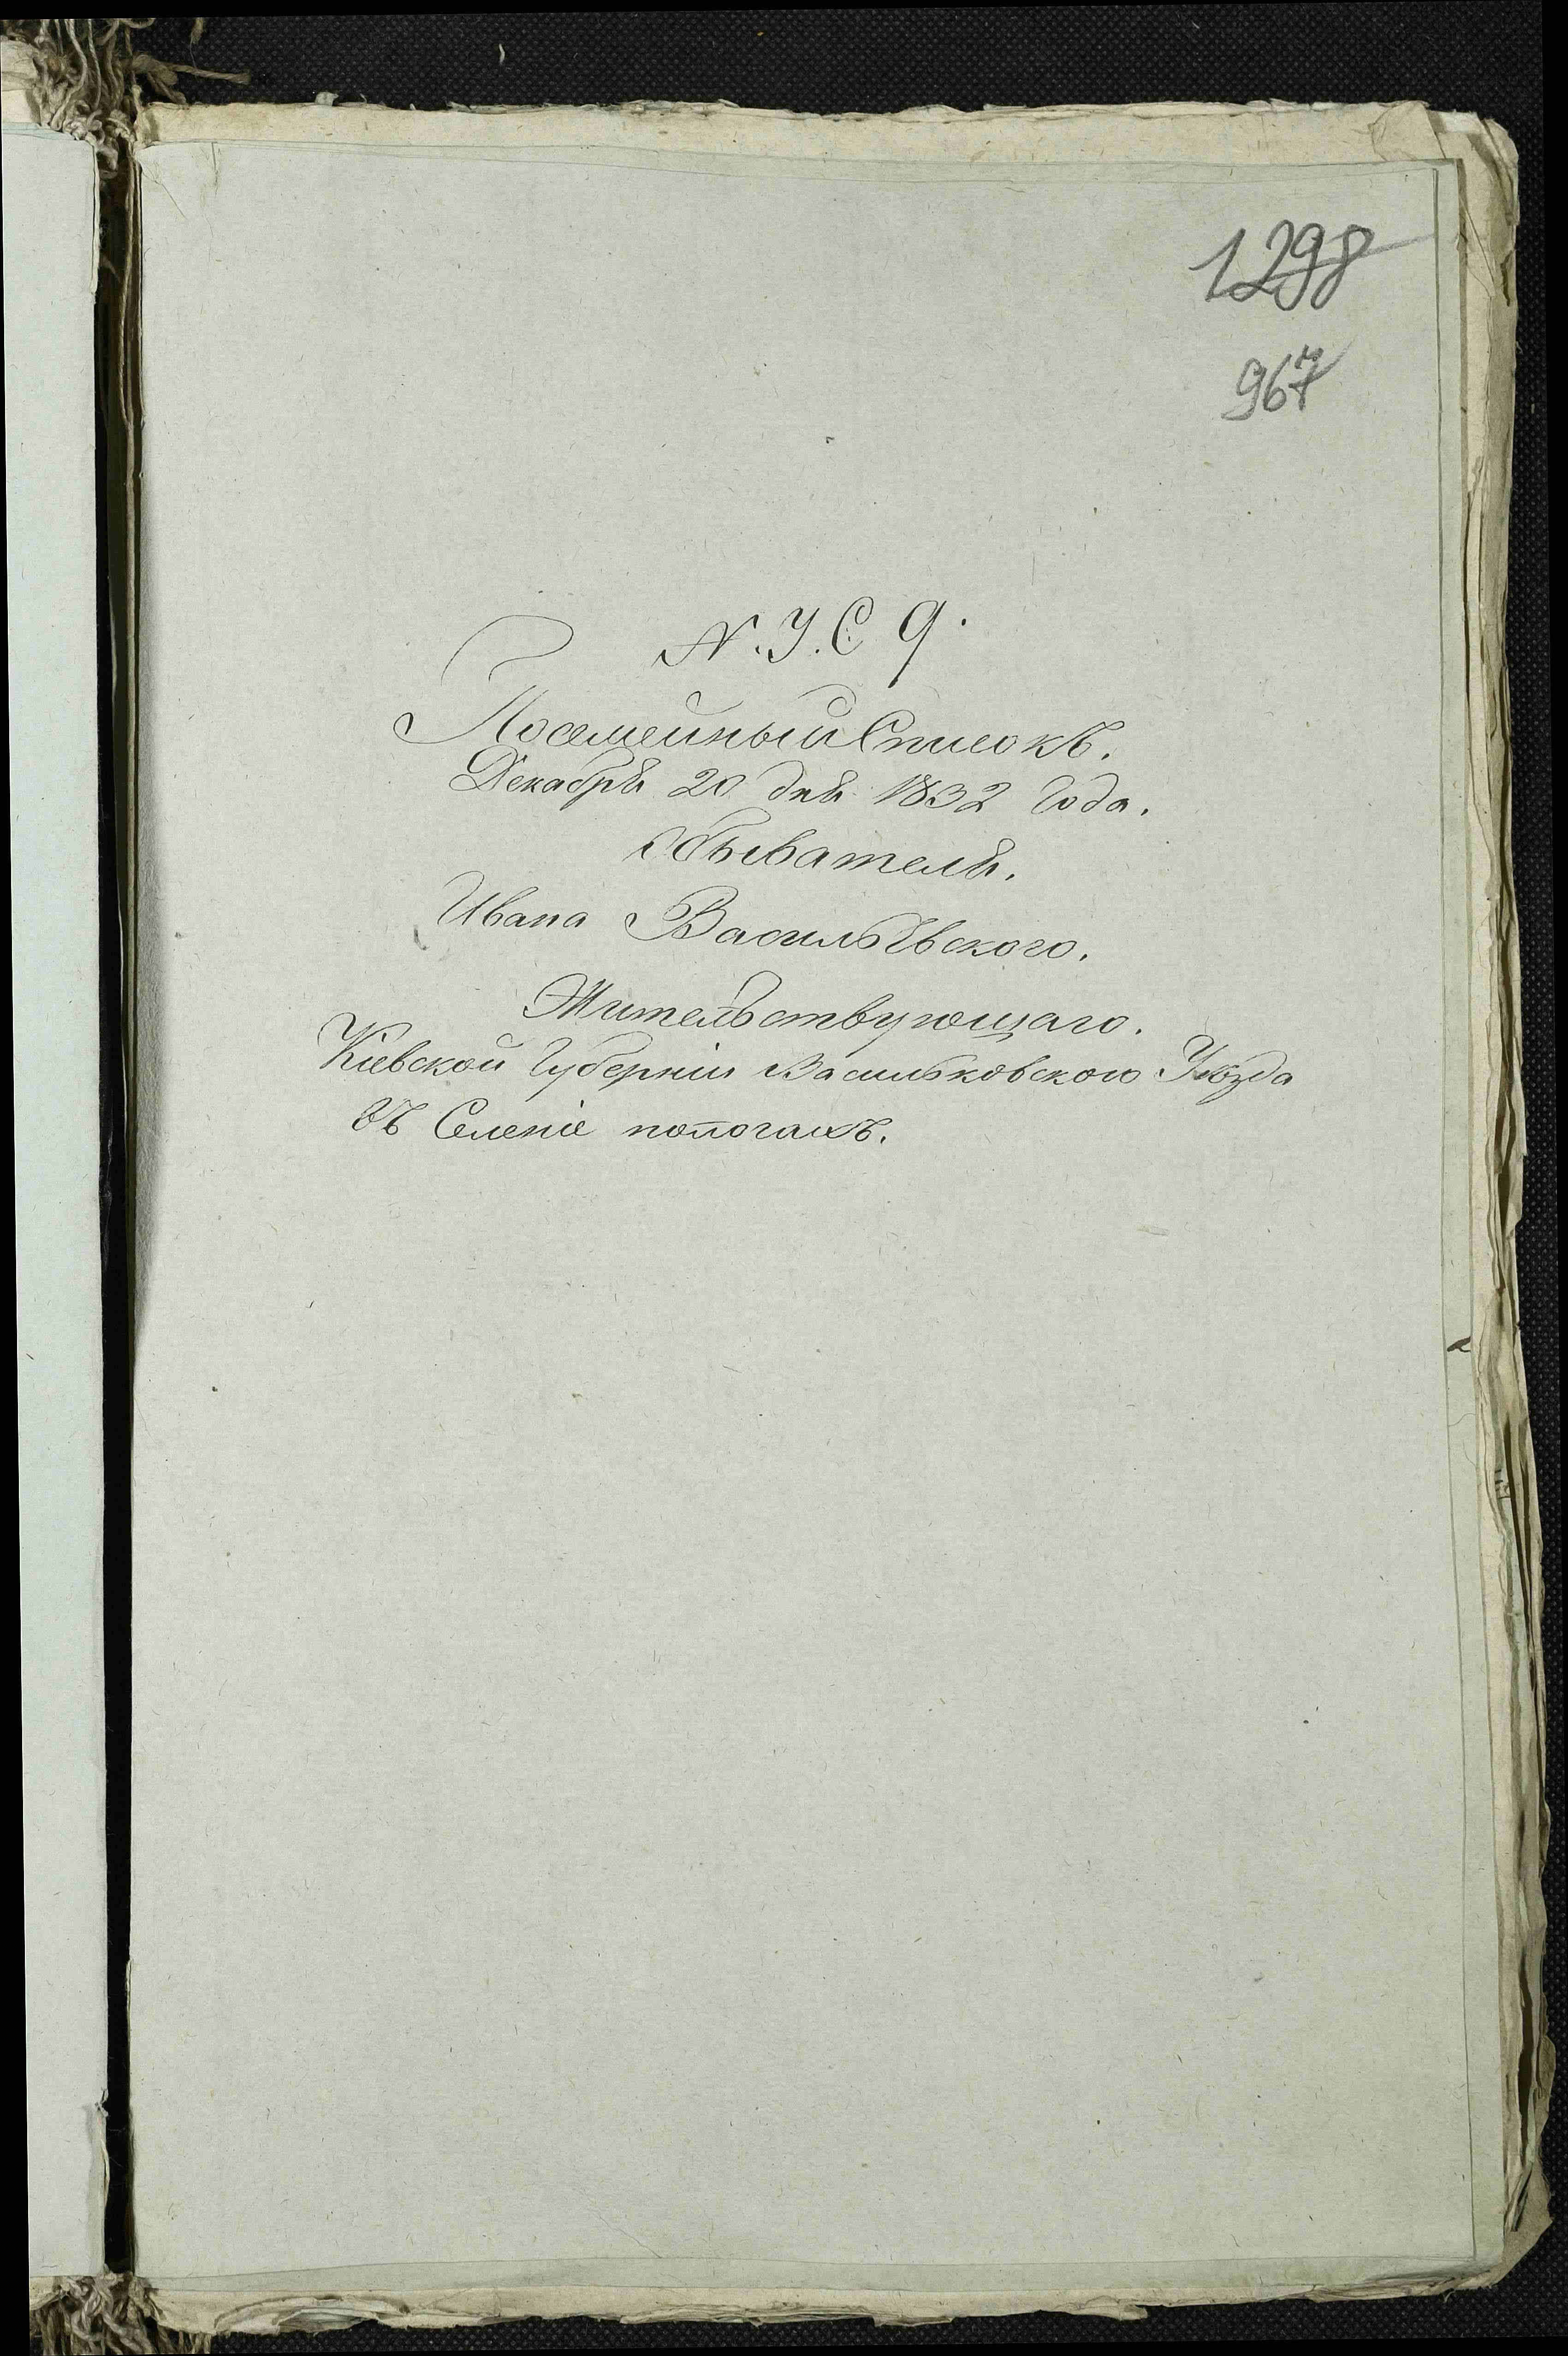 1298
967
N. У. С 9.
Посемейный Списокъ.
Декабря 20 дня 1832 Года.
Обывателя.
Ивана Васильѣвского.
Жительствующаго.
Кіевской Губерніи Васильковского Уѣзда
въ Селеніе попогахъ.